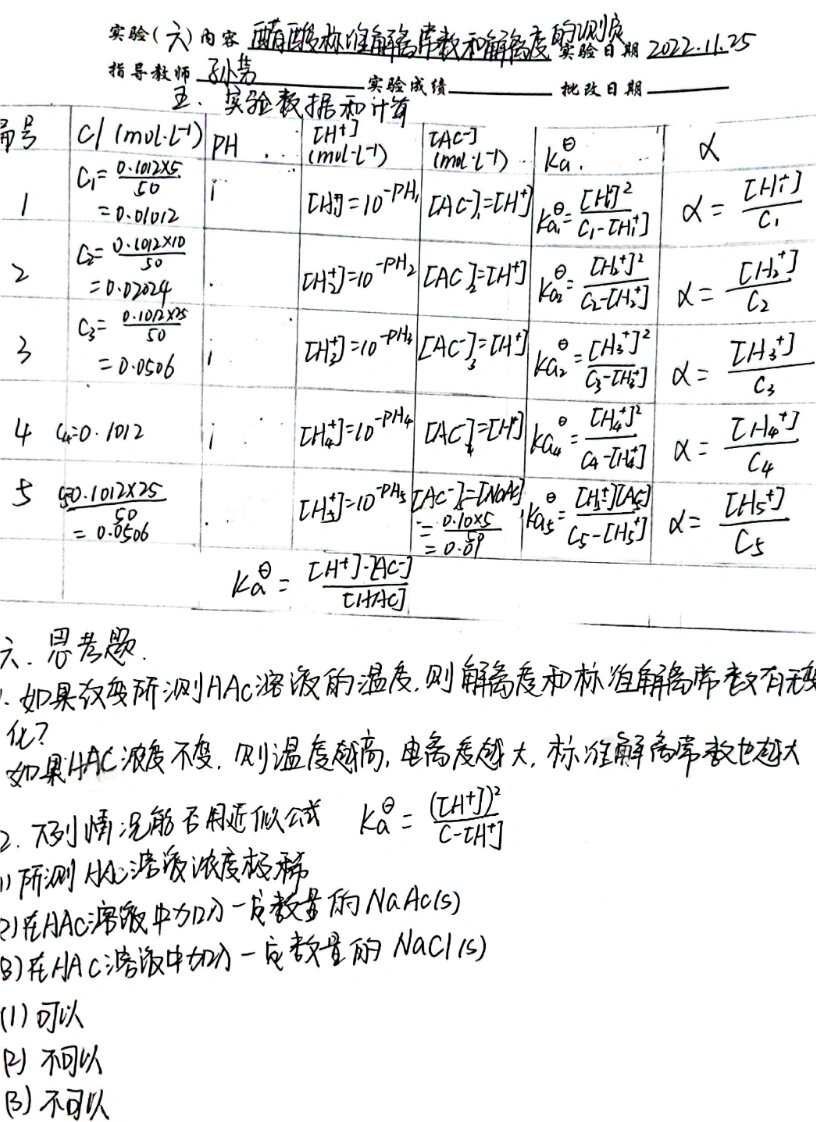 实验(六)内容 醋酸标准解离常数和解离度的测定 实验日期 2022.11.25
指导教师 实验成绩 批改日期
五、实验数据和计算
C/(mol·L⁻¹) PH [H⁺](mol·L⁻¹) [AC⁻](mol·L⁻¹) Ka^θ α
1 C₁=0.1012×5/50=0.01012 [H₁⁺]=10^-PH₁ [AC⁻]₁=[H⁺] Ka₁^θ=[H₁⁺]²/(C₁-[H₁⁺]) α=[H₁⁺]/C₁
2 C₂=0.1012×10/50=0.02024 [H₂⁺]=10^-PH₂ [AC⁻]₂=[H⁺] Ka₂^θ=[H₂⁺]²/(C₂-[H₂⁺]) α=[H₂⁺]/C₂
3 C₃=0.1012×25/50=0.0506 [H₃⁺]=10^-PH₃ [AC⁻]₃=[H⁺] Ka₂^θ=[H₃⁺]²/(C₃-[H₃⁺]) α=[H₃⁺]/C₃
4 C₄=0.1012 [H₄⁺]=10^-PH₄ [AC⁻]₄=[H⁺] Ka₄^θ=[H₄⁺]²/(C₄-[H₄⁺]) α=[H₄⁺]/C₄
5 0.1012×25/50=0.0506 [H₅⁺]=10^-PH₅ [AC⁻]₅=[NaAc]=0.10×5/50=0.01 Ka₅^θ=[H₅⁺][AC₅⁻]/(C₅-[H₅⁺]) α=[H₅⁺]/C₅
Ka^θ=[H⁺]·[AC⁻]/[HAC]
六、思考题.
1. 如果改变所测HAc溶液的温度,则解离度和标准解离常数有无变
化?
如果HAC浓度不变,则温度越高,电离度越大,标准解离常数也越大
2. 下列情况能否用近似公式 Ka^θ=([H⁺])²/(C-[H⁺])
(1)所测HAc溶液浓度极稀
(2)在HAc溶液中加入一定数量的NaAc(s)
(3)在HAC溶液中加入一定数量的NaCl(s)
(1)可以
(2)不可以
(3)不可以